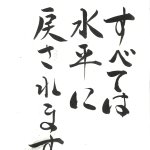 すべては
水平に
戻されます